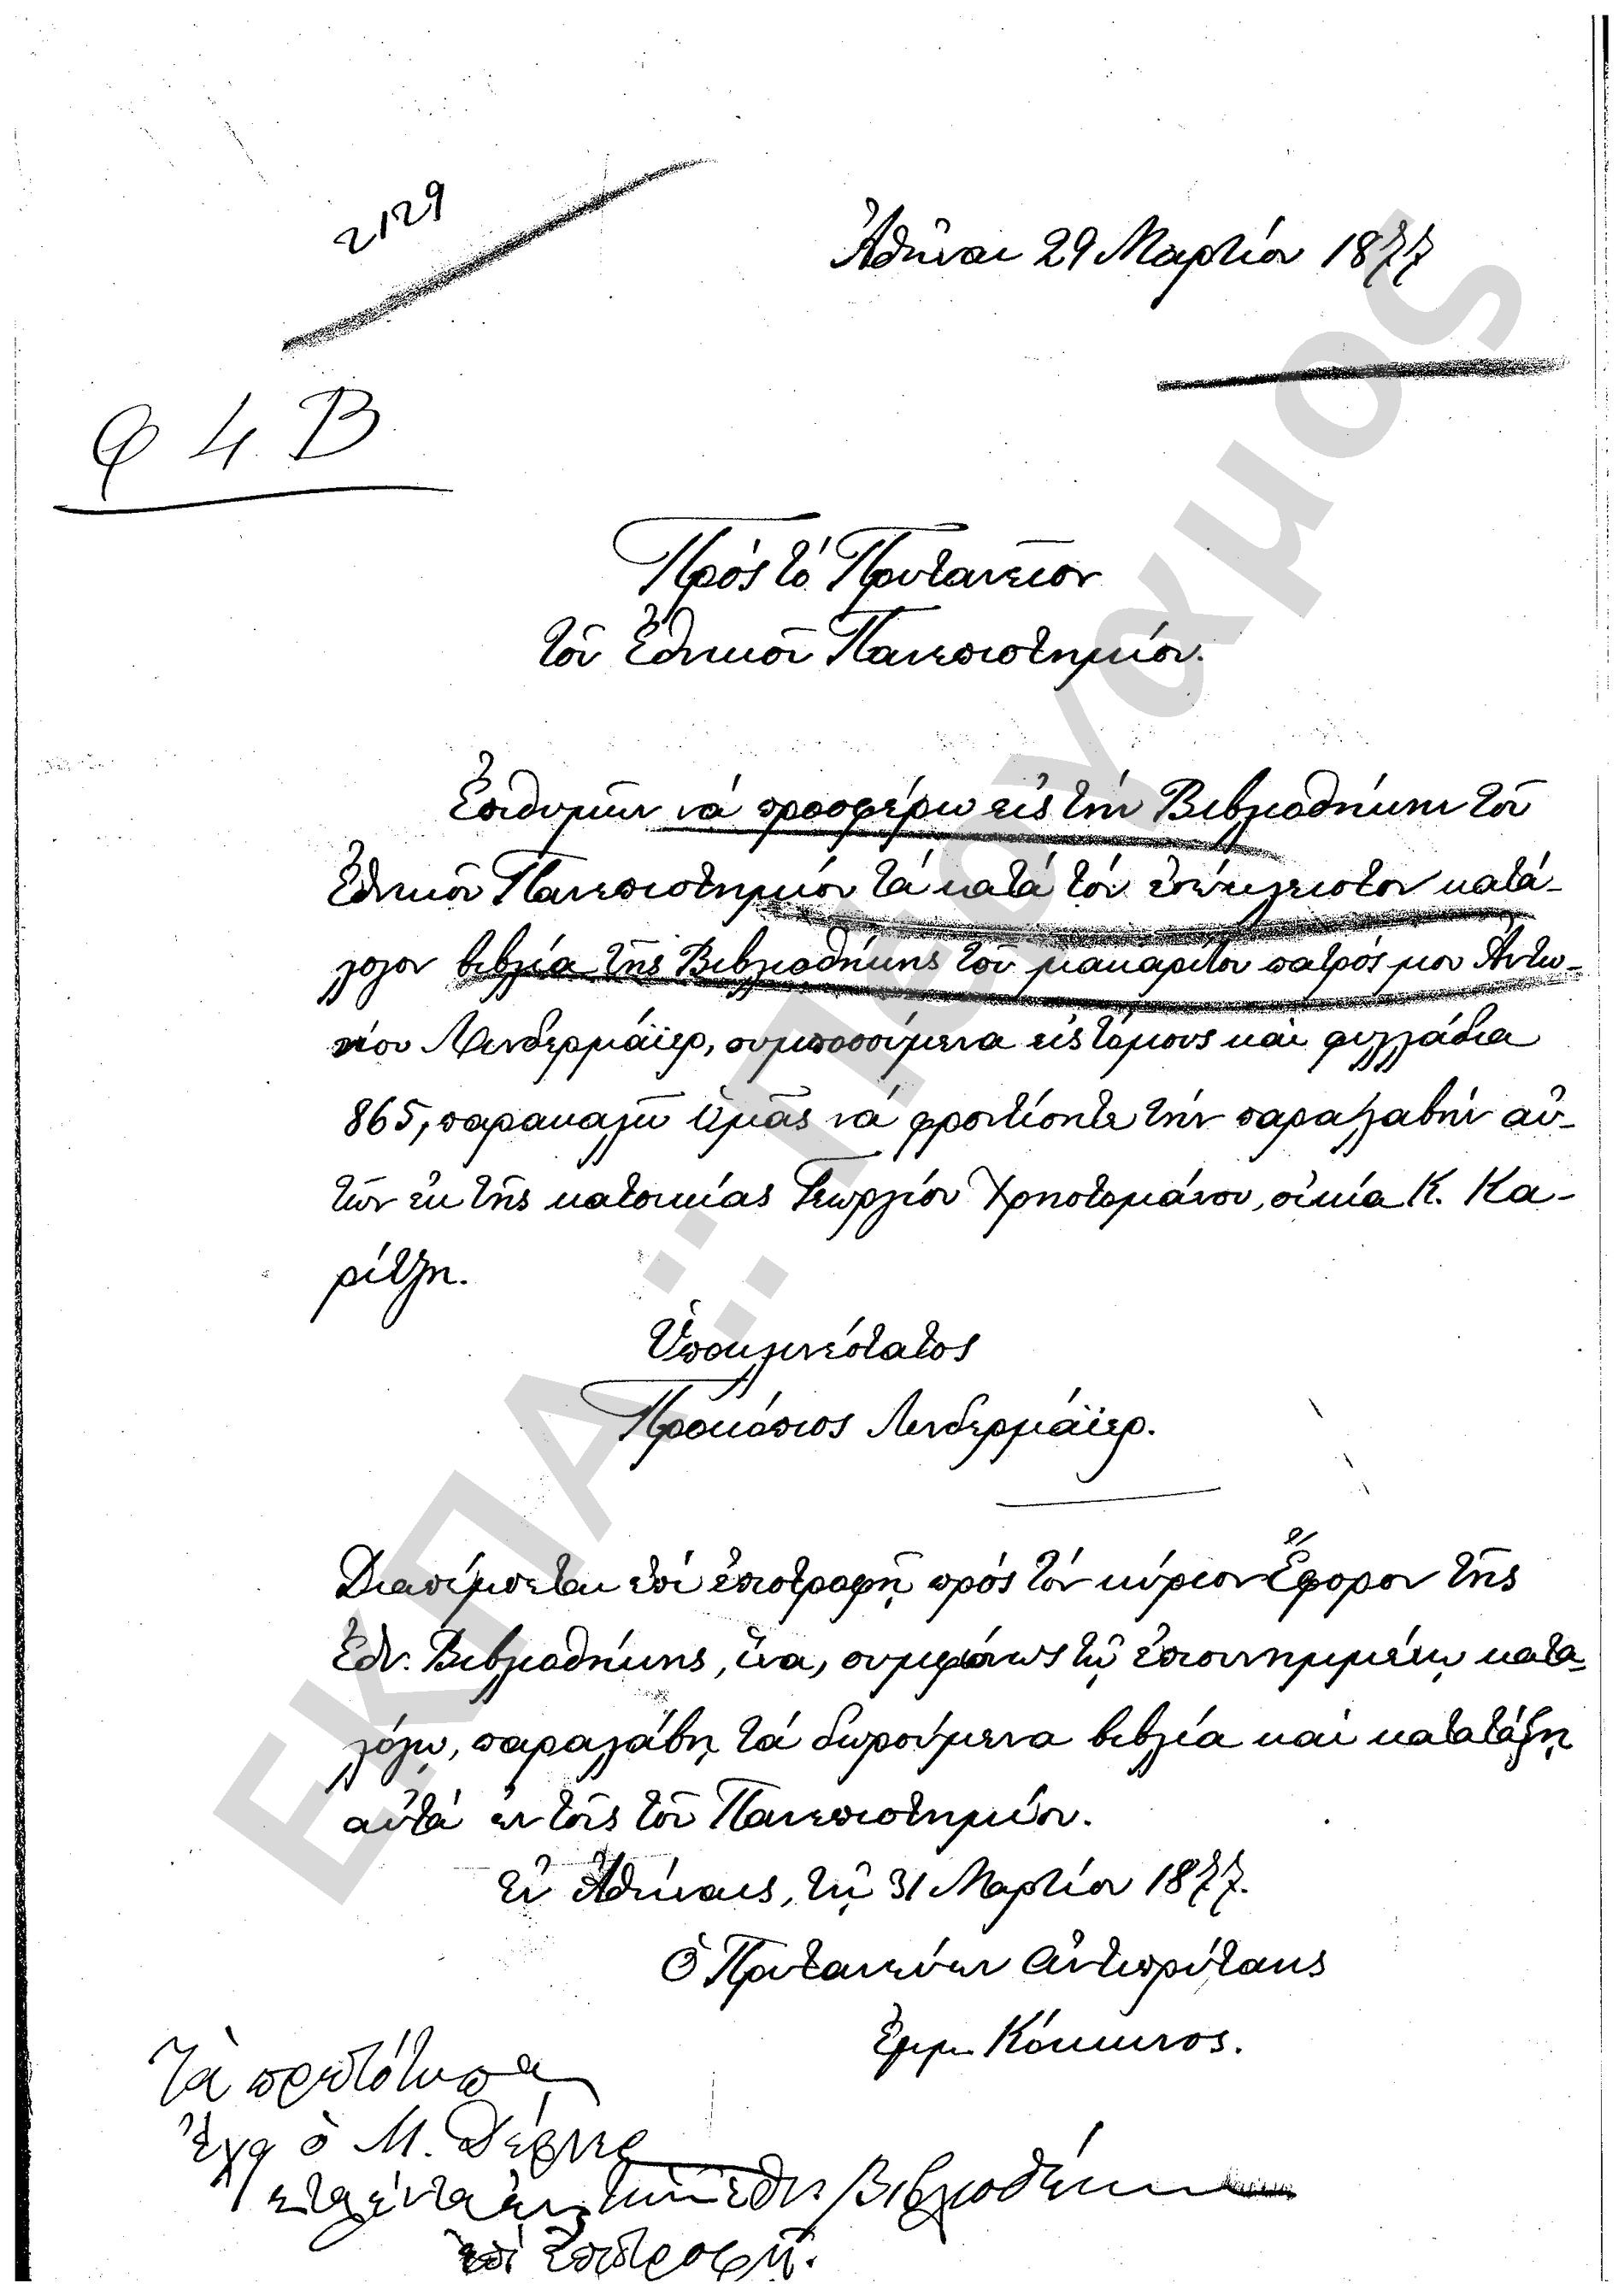 2129
Ἀθῆναι 29 Μαρτίου 1877
Φ 4 Β
Πρὸς τὸ Πρυτανεῖον
τοῦ Ἐθνικοῦ Πανεπιστημίου.
Ἐπιθυμῶν νά προσφέρω εἰς τήν Βιβλιοθήκην τοῦ
Ἐθνικοῦ Πανεπιστημίου τά κατά τόν ἐσώκλειστον κατά-
λογον βιβλία τῆς Βιβλιοθήκης τοῦ μακαρίτου πατρός μου Ἀντω-
νίου Λινδερμάϊερ, συμποσούμενα εἰς τόμους καί φυλλάδια
865, παρακαλῶ ὑμᾶς νά φροντίσητε τήν παραλαβήν αὐ-
τῶν ἐκ τῆς κατοικίας Γεωργίου Χρηστομάνου, οἰκία Κ. Κα-
ρίτζη.
Ὑποκλινέστατος
Προκόπιος Λινδερμάϊερ.
Διαπέμπεται ἐπί ἐπιστροφῇ πρός τόν κύριον Ἔφορον τῆς
Ἐθν. Βιβλιοθήκης, ἵνα, συμφώνως τῷ ἐπισυνημμένῳ κατα-
λόγῳ, παραλάβῃ τά δωρούμενα βιβλία καί κατατάξῃ
αὐτά ἐν τοῖς τοῦ Πανεπιστημίου.
Ἐν Ἀθήναις, τῇ 31 Μαρτίου 1877.
Ὁ Πρυτανεύων ἀντιπρύτανις
Ἐμμ. Κόκκινος.
Τὰ πρωτότυπα
ἔχει ὁ Μ. Δέφνερ
ἐν τῇ Ἐθν. Βιβλιοθήκῃ
ἐπὶ ἐπιστροφῇ.
ΕΚΠΑ: Πέργαμος